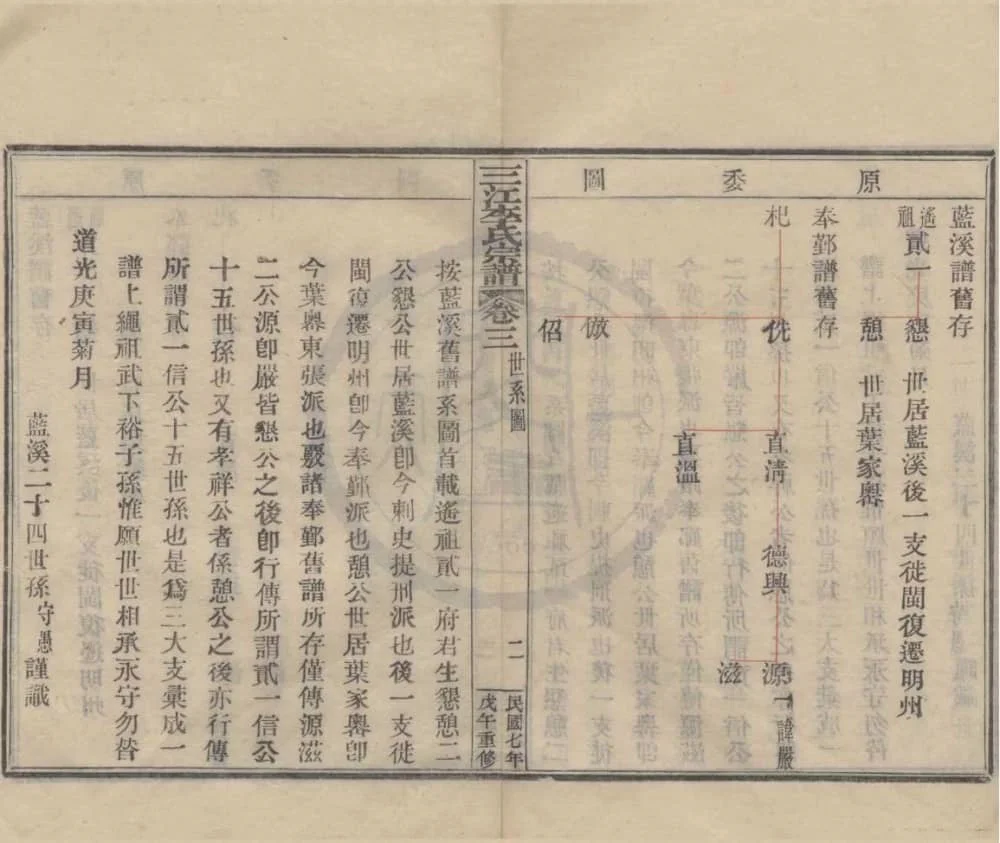 原委圖
藍溪譜舊存
遙祖貳一
懇 世居藍溪後一支徙閩復遷明州
憩 世居葉家嶴
奉鄞譜舊存
杞
侁 直清 德興 源 一諱嚴
滋
直溫
倣
佋
三江李氏宗譜 卷三 世系圖 二 民國七年戊午重修
按藍溪舊譜系圖首載遙祖貳一府君生懇憩二
公懇公世居藍溪卽今刺史提刑派也後一支徙
閩復遷明州卽今奉鄞派也憩公世居葉家嶴卽
今葉嶴東張派也覈諸奉鄞舊譜所存僅傳源滋
二公源卽嚴皆懇公之後卽行傳所謂貳一信公
十五世孫也又有孝祥公者係憩公之後亦行傳
所謂貳一信公十五世孫也是爲三大支彙成一
譜上繩祖武下裕子孫惟願世世相承永守勿替
道光庚寅菊月
藍溪二十四世孫守愚謹識